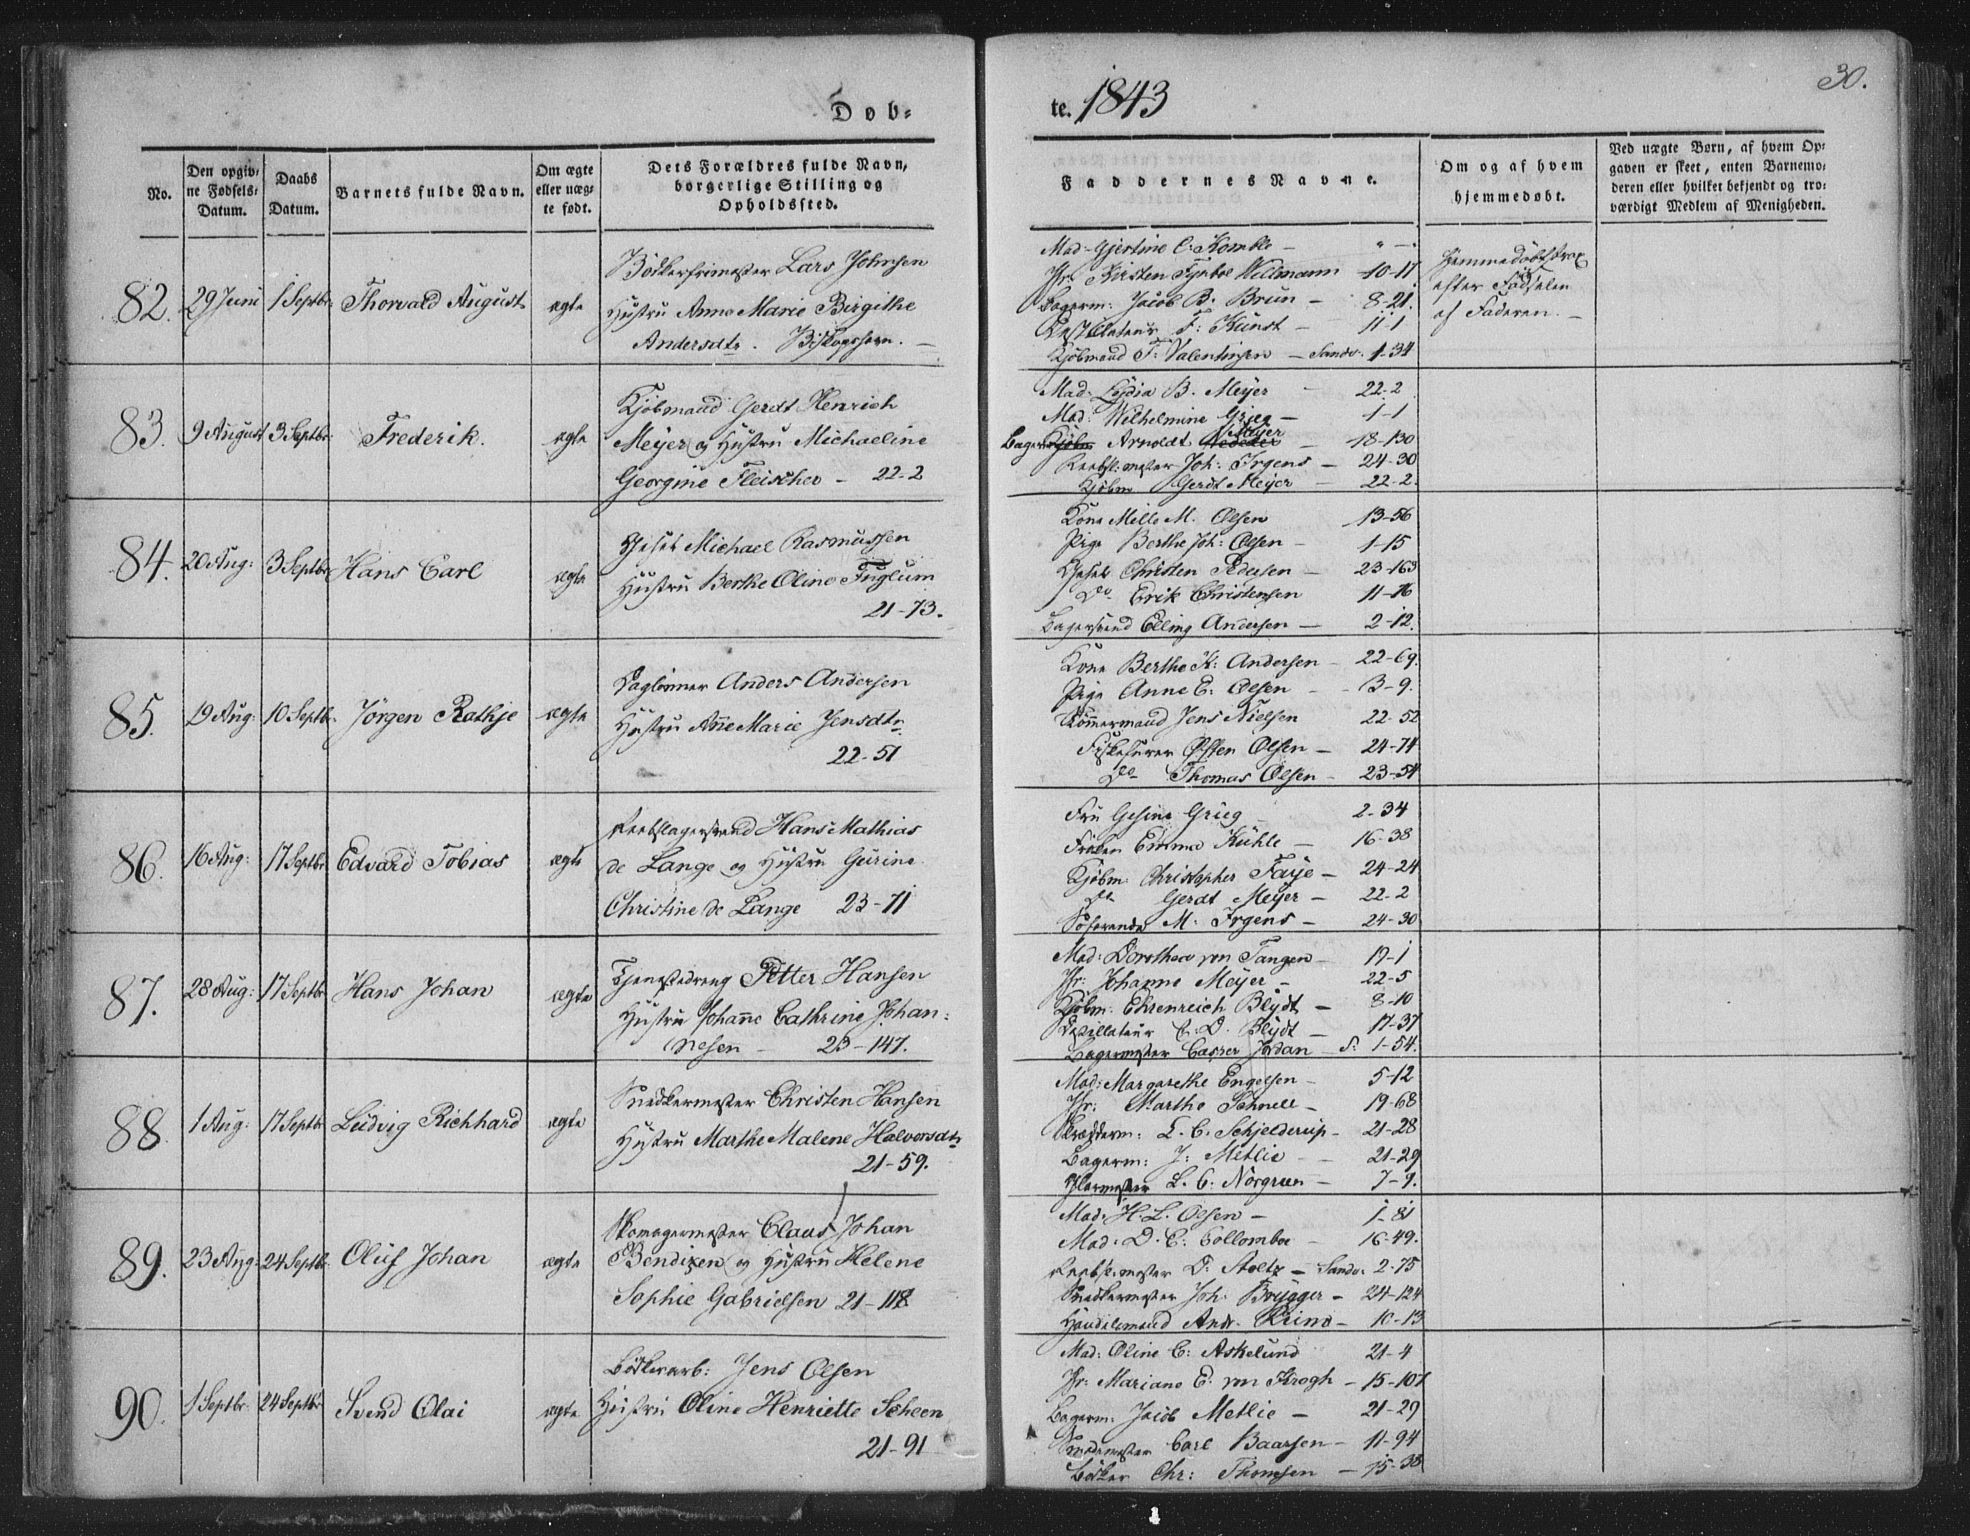 Døb=
te. 1843
30.
No.
Den opgiv=
ne Fødsels=
Datum.
Daabs
Datum.
Barnets fulde Navn.
Om ægte
eller uæg=
te født.
Dets Forældres fulde Navn,
borgerlige Stilling og
Opholdssted.
Faddernes Navne.
Om og af hvem
hjemmedøbt.
Ved uægte Børn, af hvem Op=
gaven er skeet, enten Barnemo=
deren eller hvilket bekjendt og tro=
værdigt Medlem af Menigheden.
82. 29 Juni 1 Septbr: Thorvald August ægte
Lars Johnsen
Hustru Anne Marie Birgithe
Andersdtr.
Mad. Gjertine C: Komble —
Jfr. Kirsten Fynboe Wellmann — 10-17
Bagerm: Jacob B. Brun — 8-21.
F: Kunst — 11-1
Kjøbmand F: Valentinsen — Sandv. 1-34
Hjemmedøbt strax
efter Fødselen
af Faderen. —
83. 9 August 3 Septbr: Frederik. ægte
Kjøbmand Gerdt Henrich
Meyer og Hustru Michaeline
Georgine Fleischer — 22-2
Mad. Lydia B. Meyer 22-2
Mad. Wilhelmine Grieg — 1-1
Arnoldt Meyer — 18-130
Reebsl:mester Joh: Irgens — 24-30
Kjøbm Gerdt Meyer — 22-2.
84. 20 Aug: 3 Septbr Hans Carl ægte
Michael Rasmussen
Hustru Berthe Oline Fuglum
21-73.
Kone Mille M. Olsen 13-56
Pige Berthe Joh: Olsen — 1-15
Christen Pedersen — 23-163
Do Erik Christensen 11-76
Bagersvend Elling Andersen — 2-12.
85. 19 Aug: 10 Septb. Jörgen Rathje ægte
Daglønner Anders Andersen
Hustru Anne Marie Jensdtr
22-51
Kone Berthe K: Andersen — 22-69.
Pige Anne E: Olsen — 3-9.
Jens Nielsen 22-52
Østen Olsen — 24-74
Do Thomas Olsen — 23-54
86. 16 Aug: 17 Septbr. Edvard Tobias ægte
Reebslagersvend Hans Mathias
de Lange og Hustru Gurine
Christine de Lange 23-71
Fru Gesine Grieg — 2-34
Frøken Emma Kühle — 16-38
Kjøbm: Christopher Faye — 24-24
Do Gerdt Meyer — 22-2
M. Irgens — 24-30
87. 28 Aug: 17 Septbr Hans Johan ægte
Tjenestedreng Petter Hansen
Hustru Johanne Cathrine Johan=
nesen — 23-147.
Mad: Dorothea von Tangen — 19-1
Jfr: Johanne Meyer — 22-5
Kjøbm: Ehrenreich Blydt — 8-10
Destillateur C: D. Blydt — 17-37
Bagermester Casper Jordan — S: 1-54.
88. 1 Aug: 17 Septbr Ludvig Richhard ægte
Snedkermester Christen Hansen
Hustru Marthe Malene Halvorsdtr
21-59.
Mad: Margarethe Engelsen — 5-12
Jfr: Marthe Schnell — 19-68
Skrædderm: L. C. Schjelderup — 21-28
Bagerm: J: Metlie — 21-29
Glarmester L. C: Norgreen — 7-9.
89. 23 Aug: 24 Septbr. Oluf Johan ægte
Skomagermester Claus Johan
Bendixen og Hustru Helene
Sophie Gabrielsen 21-118
Mad: H. L. Olsen — 1-81
Mad: D. C: Collomboe — 16-49.
Reebsl:mester D: Stoltz — Sandv. 2-75
Snedkermester Joh: Brygger — 24-124
Handelsmand Andr. — 10-13
90. 1 Septbr. 24 Septbr Svend Olai ægte
Bødkerarb: Jens Olsen
Hustru Oline Henriette Scheen
21-91
Mad: Oline C: Askelund 21-4
Jfr: Mariane E. von Krogh — 15-107
Bagerm: Jacob Metlie — 21-29
Carl Baarsen — 11-94
Bødker Chr: Thomsen — 15-38